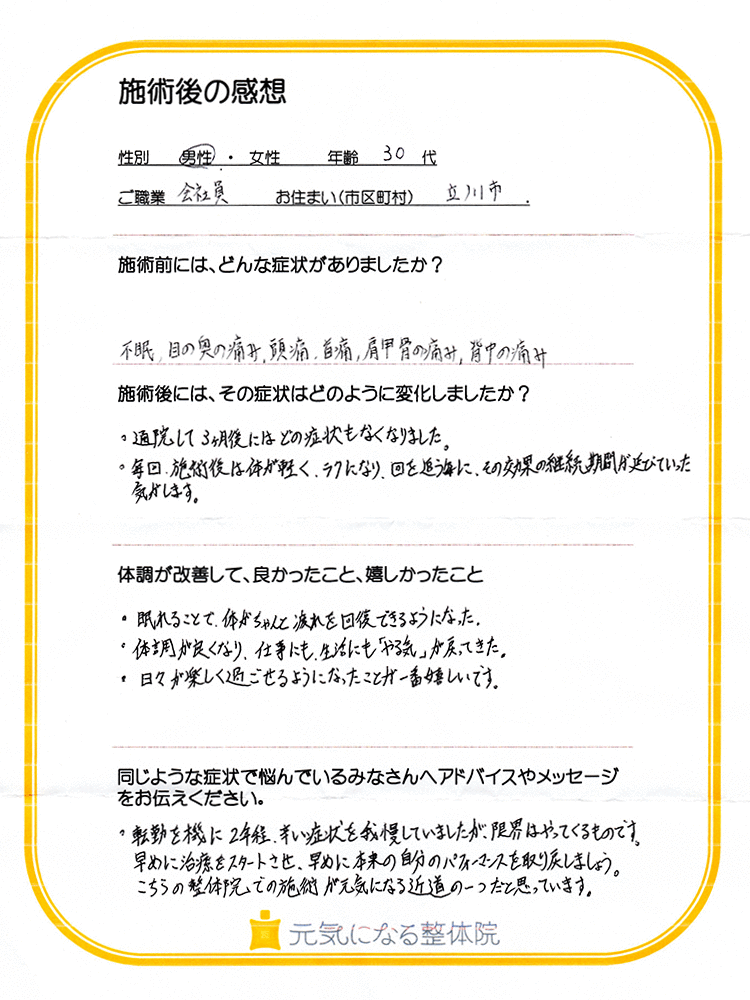 施術後の感想
性別 男性 ・ 女性 年齢 30 代
ご職業 会社員 お住まい(市区町村) 立川市 .
施術前には、どんな症状がありましたか?
不眠, 目の奥の痛み, 頭痛, 首痛, 肩甲骨の痛み, 背中の痛み
施術後には、その症状はどのように変化しましたか?
。通院して3ヶ月後にはどの症状もなくなりました。
。毎回、施術後は体が軽く、ラクになり、回を追う毎に、その効果の継続期間が延びていった
気がします。
体調が改善して、良かったこと、嬉しかったこと
・ 眠れることで、体がちゃんと疲れを回復できるようになった。
・ 体調が良くなり、仕事にも、生活にも「やる気」が戻ってきた。
・ 日々が楽しく過ごせるようになったことが一番嬉しいです。
同じような症状で悩んでいるみなさんへアドバイスやメッセージ
をお伝えください。
。転勤を機に2年経、辛い症状を我慢していましたが、限界はやってくるものです。
早めに治療をスタートさせ、早めに本来の自分のパフォーマンスを取り戻しましょう。
こちらの整体院での施術が元気になる近道の一つだと思っています。
元気になる整体院